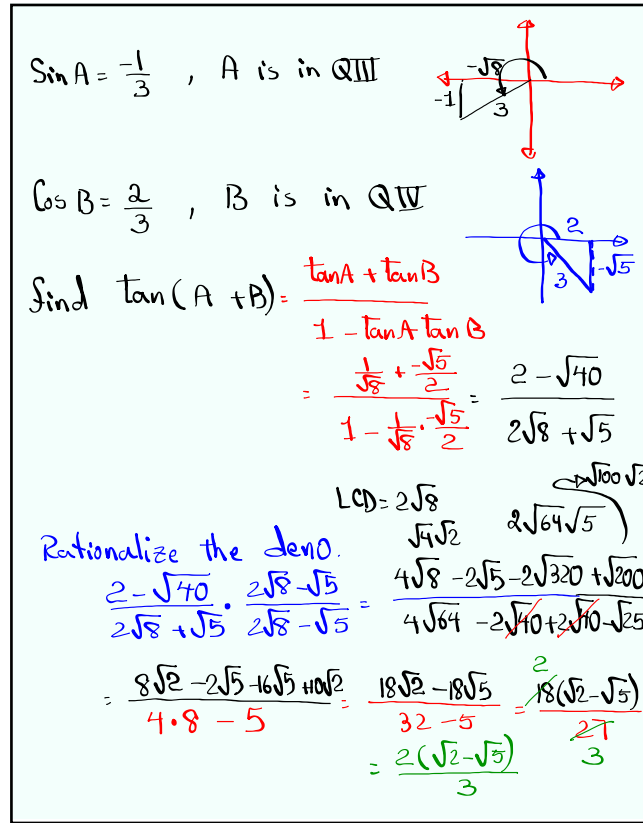 Sin A = -1/3 , A is in QIII
-√8
-1
3
Cos B = 2/3 , B is in QIV
2
-√5
3
find tan(A + B) = (tanA + tanB)/(1 - tanA tanB)
= (1/√8 + -√5/2)/(1 - 1/√8 · -√5/2) = (2 - √40)/(2√8 + √5)
LCD = 2√8
√4√2
2√64√5
√100√2
Rationalize the deno.
(2 - √40)/(2√8 + √5) · (2√8 - √5)/(2√8 - √5) = (4√8 - 2√5 - 2√320 + √200)/(4√64 - 2√40 + 2√40 - √25)
= (8√2 - 2√5 - 16√5 + 10√2)/(4·8 - 5) = (18√2 - 18√5)/(32 - 5) = 18(√2 - √5)/27
2
3
= 2(√2 - √5)/3